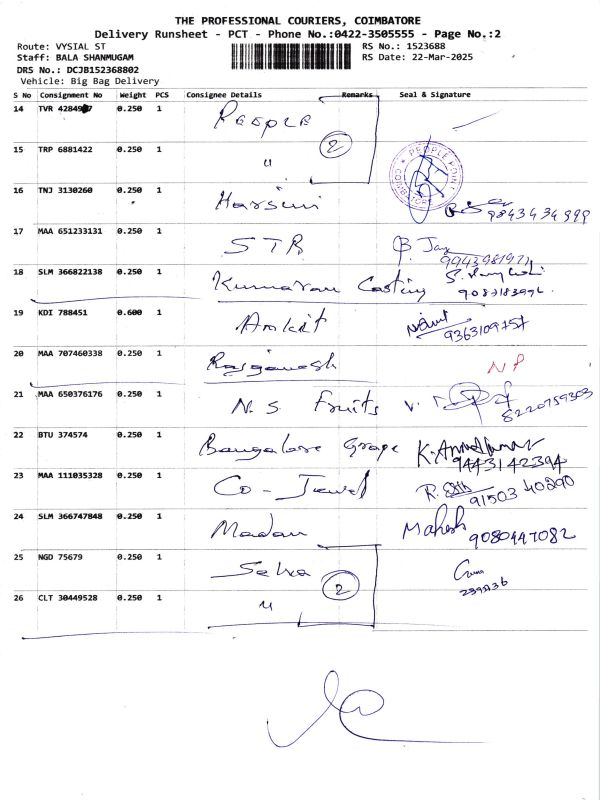 THE PROFESSIONAL COURIERS, COIMBATORE
Delivery Runsheet - PCT - Phone No.:0422-3505555 - Page No.:2
Route: VYSIAL ST RS No.: 1523688
Staff: BALA SHANMUGAM RS Date: 22-Mar-2025
DRS No.: DCJB152368802
Vehicle: Big Bag Delivery
S No Consignment No Weight PCS Consignee Details Remarks Seal & Signature
14 TVR 0.250 1 PEOPLE
15 TRP 6881422 0.250 1 " 2 PEOPLE POINT COIMBATORE
16 TNJ 3130260 0.250 1 Harsini 9843434999
17 MAA 651233131 0.250 1 STR B. Jay
18 SLM 366822138 0.250 1 Kumaran Casting
19 KDI 788451 0.600 1 Ankit 9363109757
20 MAA 707460338 0.250 1 Rajganesh NP
21 MAA 650376176 0.250 1 N.S. Fruits 8220759303
22 BTU 374574 0.250 1 Bangalore Grape 9443142394
23 MAA 111035328 0.250 1 Co-Jewel 91503 40290
24 SLM 366747848 0.250 1 Madan Mahesh 9080447082
25 NGD 75679 0.250 1 Selva
26 CLT 30449528 0.250 1 " 2